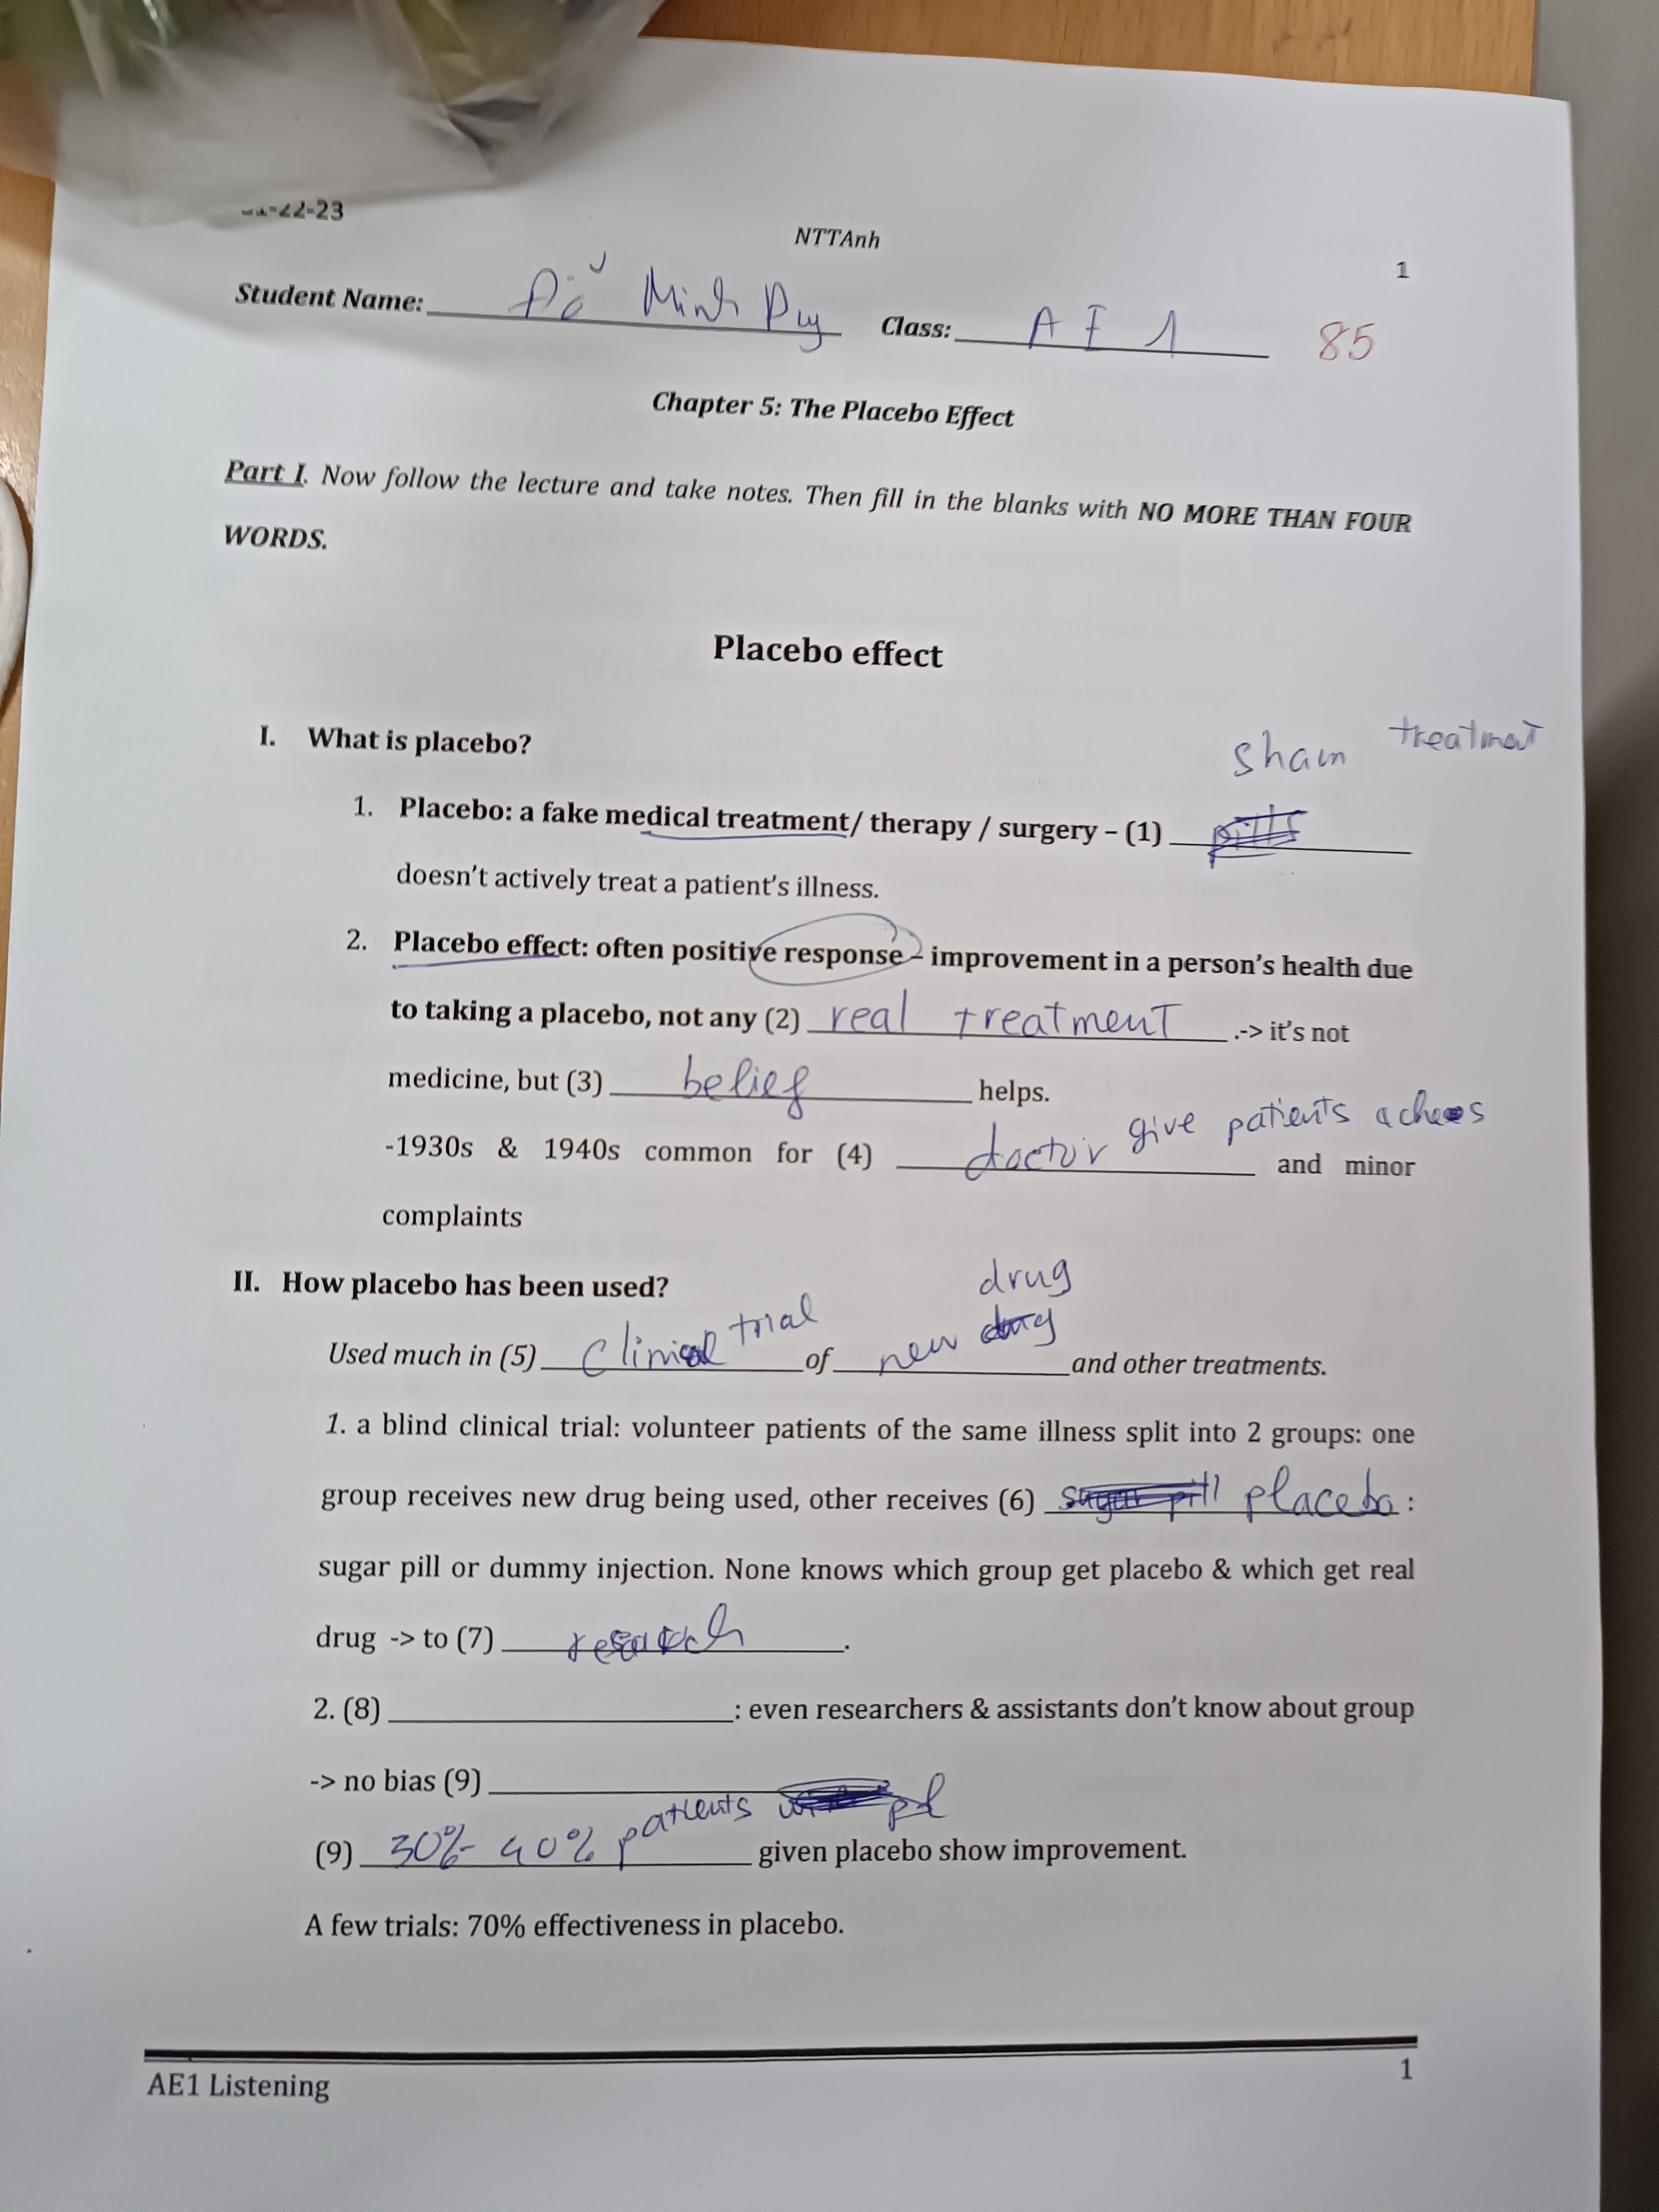 -22-23
NTTAnh
1
Student Name: Đỗ Minh Duy Class: A E 1 85
Chapter 5: The Placebo Effect
Part I. Now follow the lecture and take notes. Then fill in the blanks with NO MORE THAN FOUR
WORDS.
Placebo effect
I. What is placebo?
sham treatment
1. Placebo: a fake medical treatment/ therapy / surgery – (1) pills
doesn't actively treat a patient's illness.
2. Placebo effect: often positive response – improvement in a person's health due
to taking a placebo, not any (2) real treatment .-> it's not
medicine, but (3) belief helps.
-1930s & 1940s common for (4) doctor give patients aches and minor
complaints
II. How placebo has been used?
drug
Used much in (5) clinical trial of new and other treatments.
1. a blind clinical trial: volunteer patients of the same illness split into 2 groups: one
group receives new drug being used, other receives (6) sugar pill placebo :
sugar pill or dummy injection. None knows which group get placebo & which get real
drug -> to (7) .
2. (8) : even researchers & assistants don't know about group
-> no bias (9)
(9) 30%- 40% patients pl given placebo show improvement.
A few trials: 70% effectiveness in placebo.
AE1 Listening
1